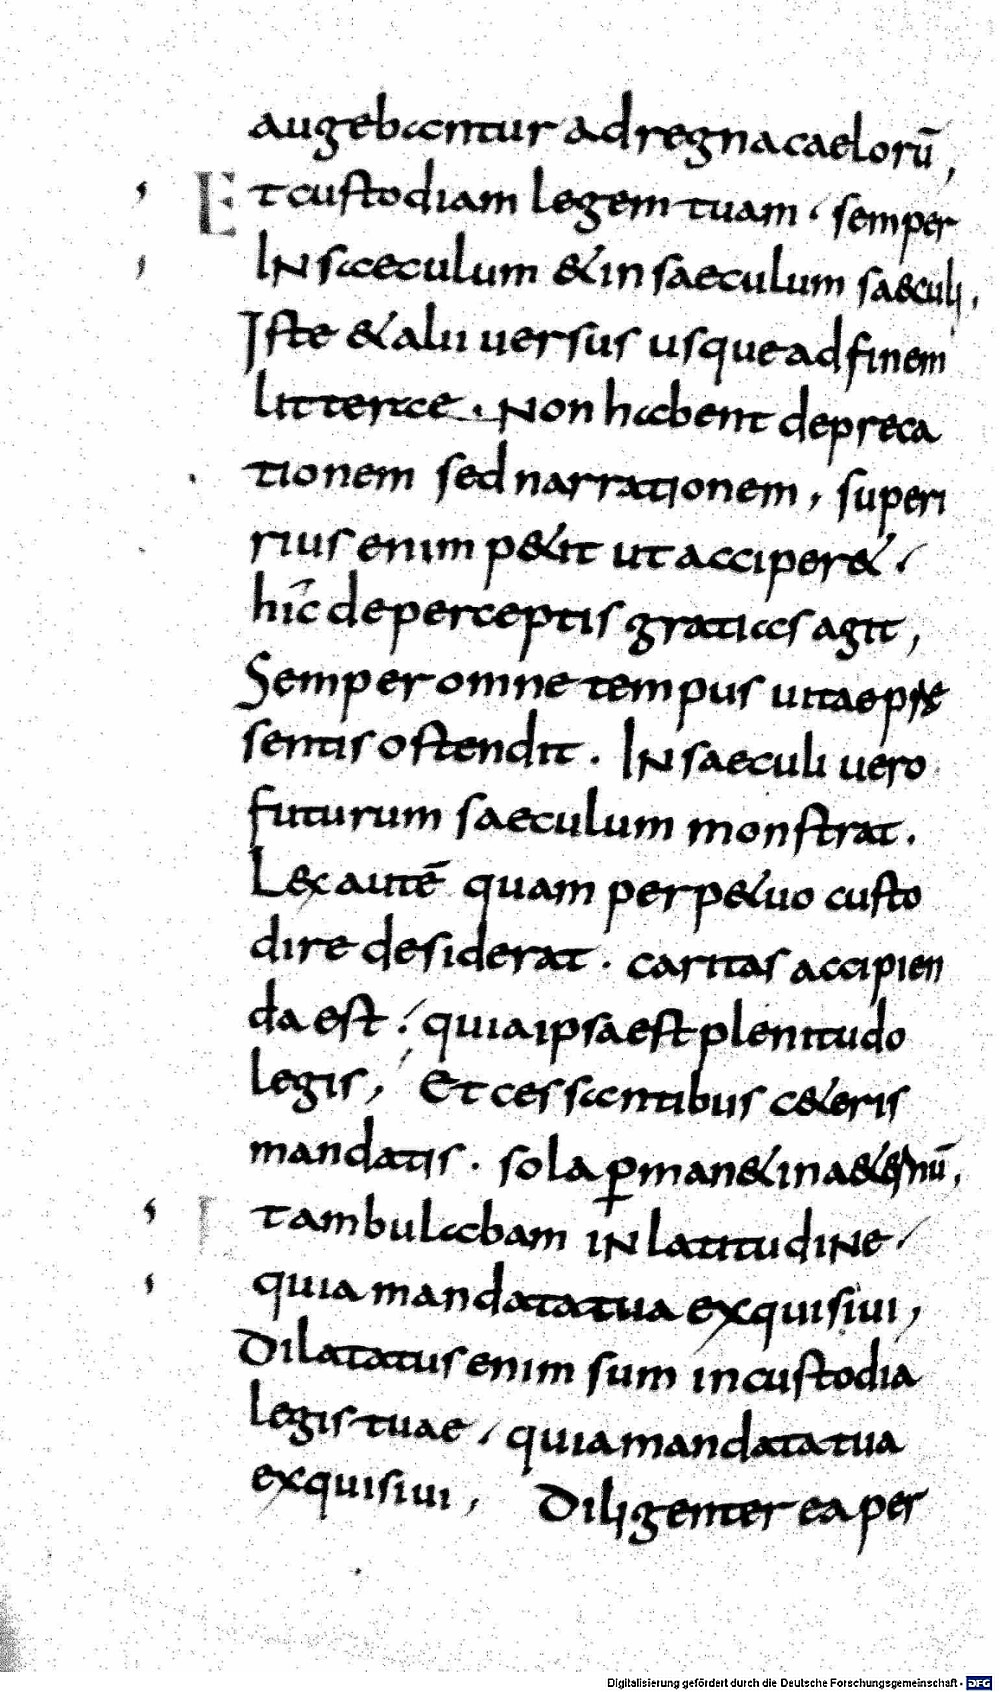 augebantur ad regna caelorū,
Et custodiam legem tuam · semper
IN saeculum & in saeculum saeculi,
Iste & alii uersus usque ad finem
litterae · Non habent depreca
tionem sed narrationem, superi
rius enim p&iit ut acciper& ·
hic̄ de perceptis gratias agit,
Semper omne tempus uitae prae
sentis ostendit · IN saeculi uero
futurum saeculum monstrat ·
Lex autē quam perp&uo custo
dire desiderat · caritas accipien
da est · quia ipsa est plenitudo
legis, Et cessantibus c&eris
mandatis · sola ꝑman& in a&ernū,
Et ambulabam IN latitudiNe
quia mandata tua exquisiui,
Dilatatus enim sum in custodia
legis tuae · quia mandata tua
exquisiui, Diligenter ea per
Digitalisierung gefördert durch die Deutsche Forschungsgemeinschaft - DFG